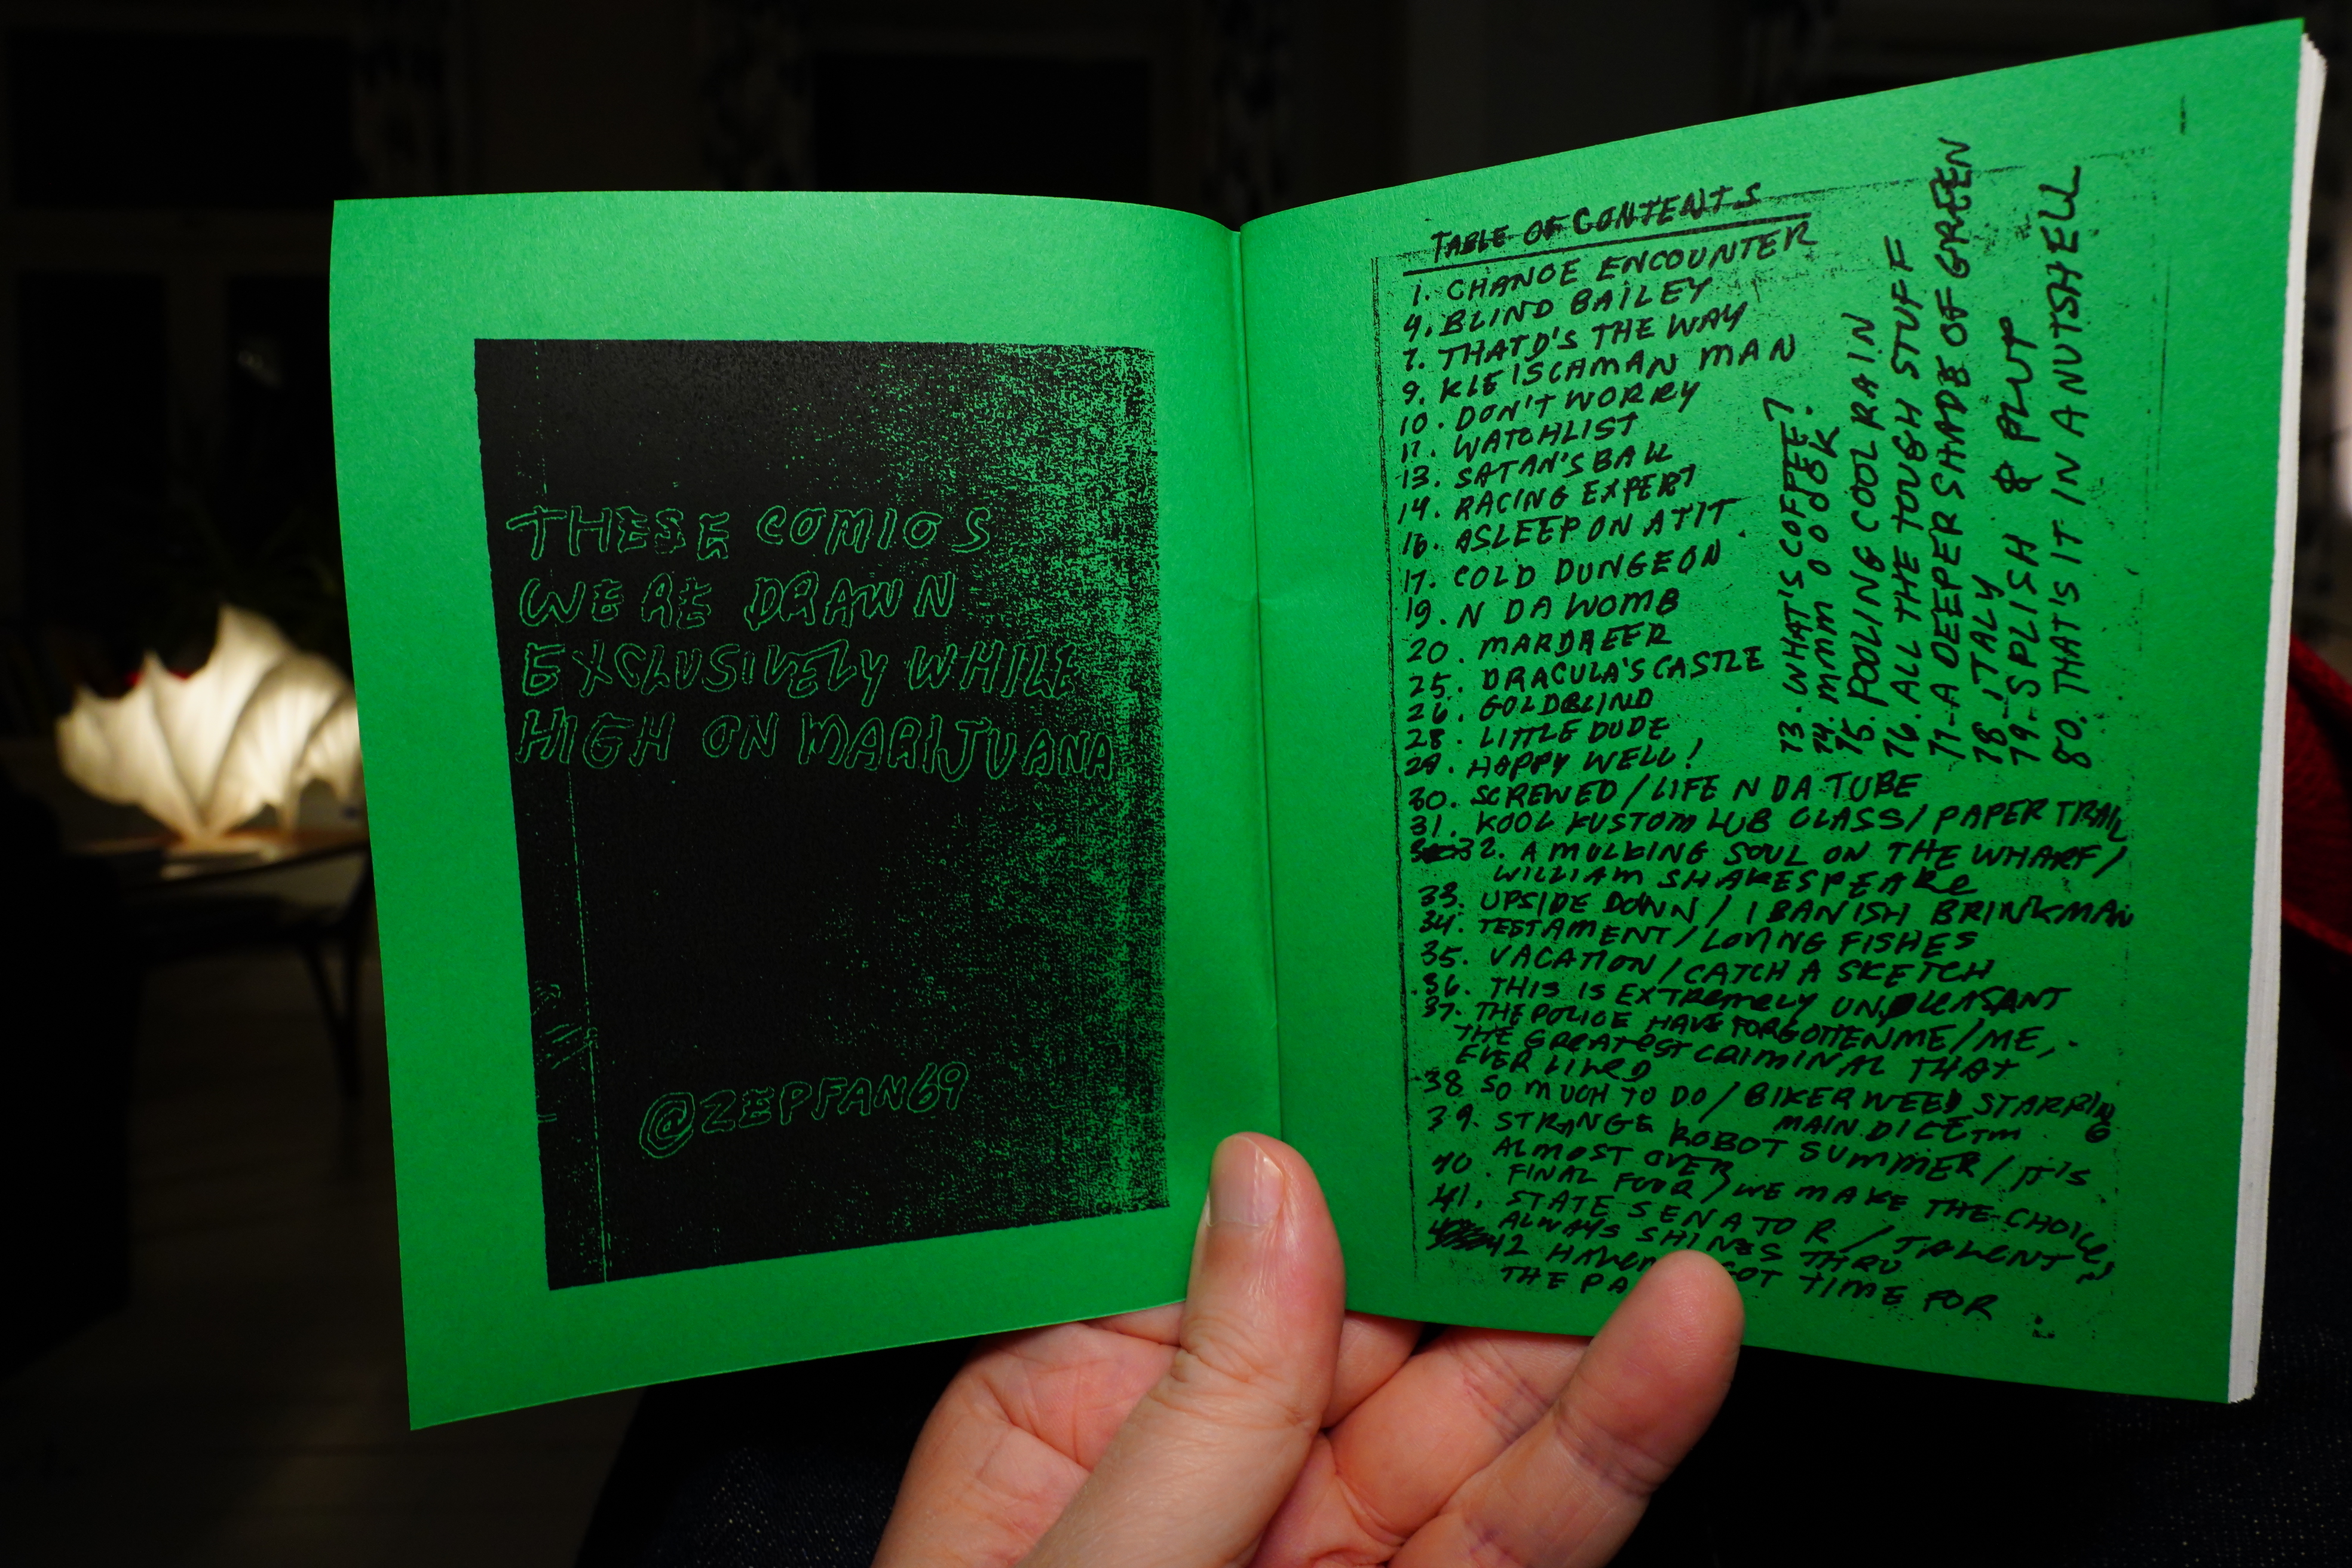 THESE COMICS
WERE DRAWN
EXCLUSIVELY WHILE
HIGH ON MARIJUANA
@ZEPFAN69
TABLE OF CONTENTS
1. CHANCE ENCOUNTER
4. BLIND BAILEY
7. THATD'S THE WAY
9. KLEISCAMAN MAN
10. DON'T WORRY
12. WATCHLIST
13. SATAN'S BALL
14. RACING EXPERT
16. ASLEEP ON A TIT
17. COLD DUNGEON
19. N DA WOMB
20. MARDAEER
25. DRACULA'S CASTLE
26. GOLDBLIND
28. LITTLE DUDE
29. HAPPY WELL!
30. SCREWED / LIFE N DA TUBE
31. KOOL KUSTOM LUB CLASS / PAPER TRAIL
32. A MULKING SOUL ON THE WHARF /
WILLIAM SHAKESPEARE
33. UPSIDE DOWN / I BANISH BRINKMAN
34. TESTAMENT / LOVING FISHES
35. VACATION / CATCH A SKETCH
36. THIS IS EXTREMELY UNPLEASANT
37. THE POLICE HAVE FORGOTTEN ME / ME,
THE GREATEST CRIMINAL THAT
EVER LIVED
38 SO MUCH TO DO / BIKER WEED STARRING
MAIN DICETM
39. STRANGE ROBOT SUMMER / IT'S
ALMOST OVER
40. FINAL FOUR / WE MAKE THE CHOICE
41. STATE SENATOR / TALENT
ALWAYS SHINES THRU
42 GOT TIME FOR
THE
73. WHAT'S COFFEE?
74. MMM
75. POOLING COOL RAIN
76. ALL THE TOUGH STUFF
77 - A DEEPER SHADE OF GREEN
78 - ITALY
79 - SPLISH & PLUT
80. THAT'S IT IN A NUTSHELL